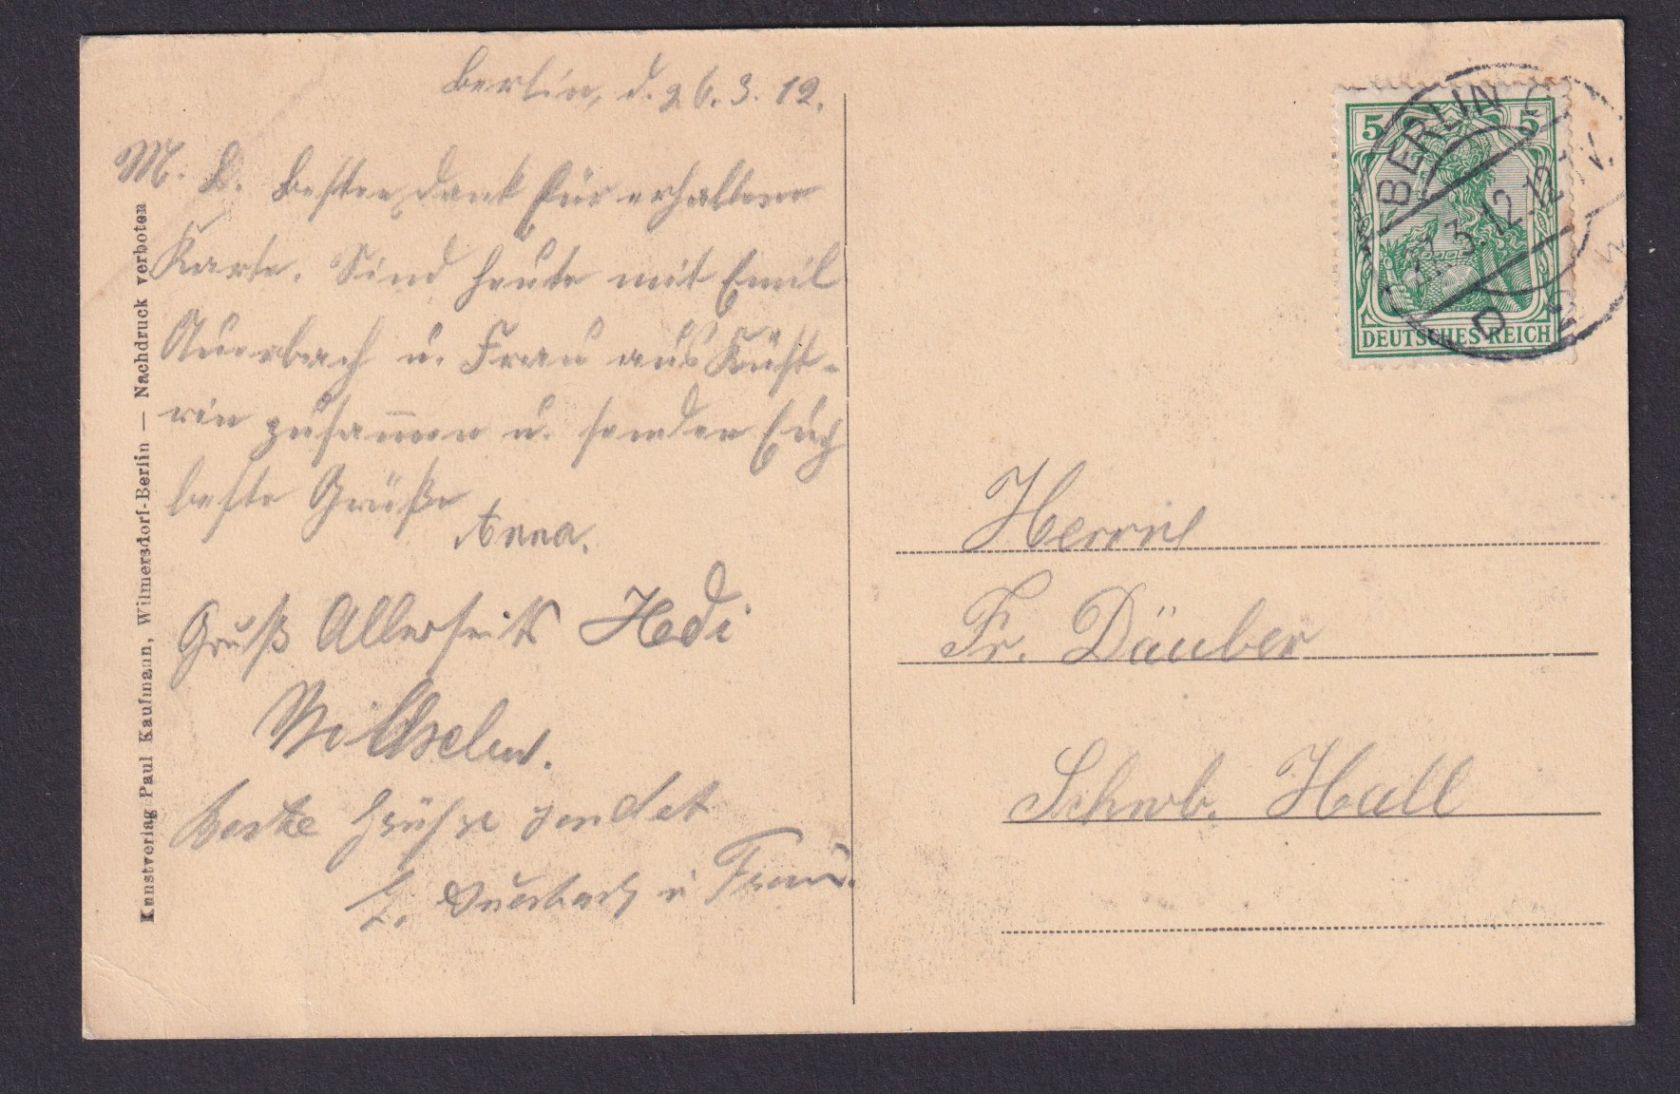 Berlin, d. 26.3.12.
M. L. Besten Dank für erhaltene
Karte. Sind heute mit Emil
Auerbach u. Frau aus Küst-
rin zusammen u. senden Euch
beste Grüße
Anna.
Gruß Allerseits Hedi
Wilhelm.
Beste Grüsse sendet
E. Auerbach u Frau.
Kunstverlag Paul Kaufmann, Wilmersdorf-Berlin — Nachdruck verboten
5 5
DEUTSCHES REICH
BERLIN C
3.12.12
Herrn
Fr. Däuber
Schwb. Hall